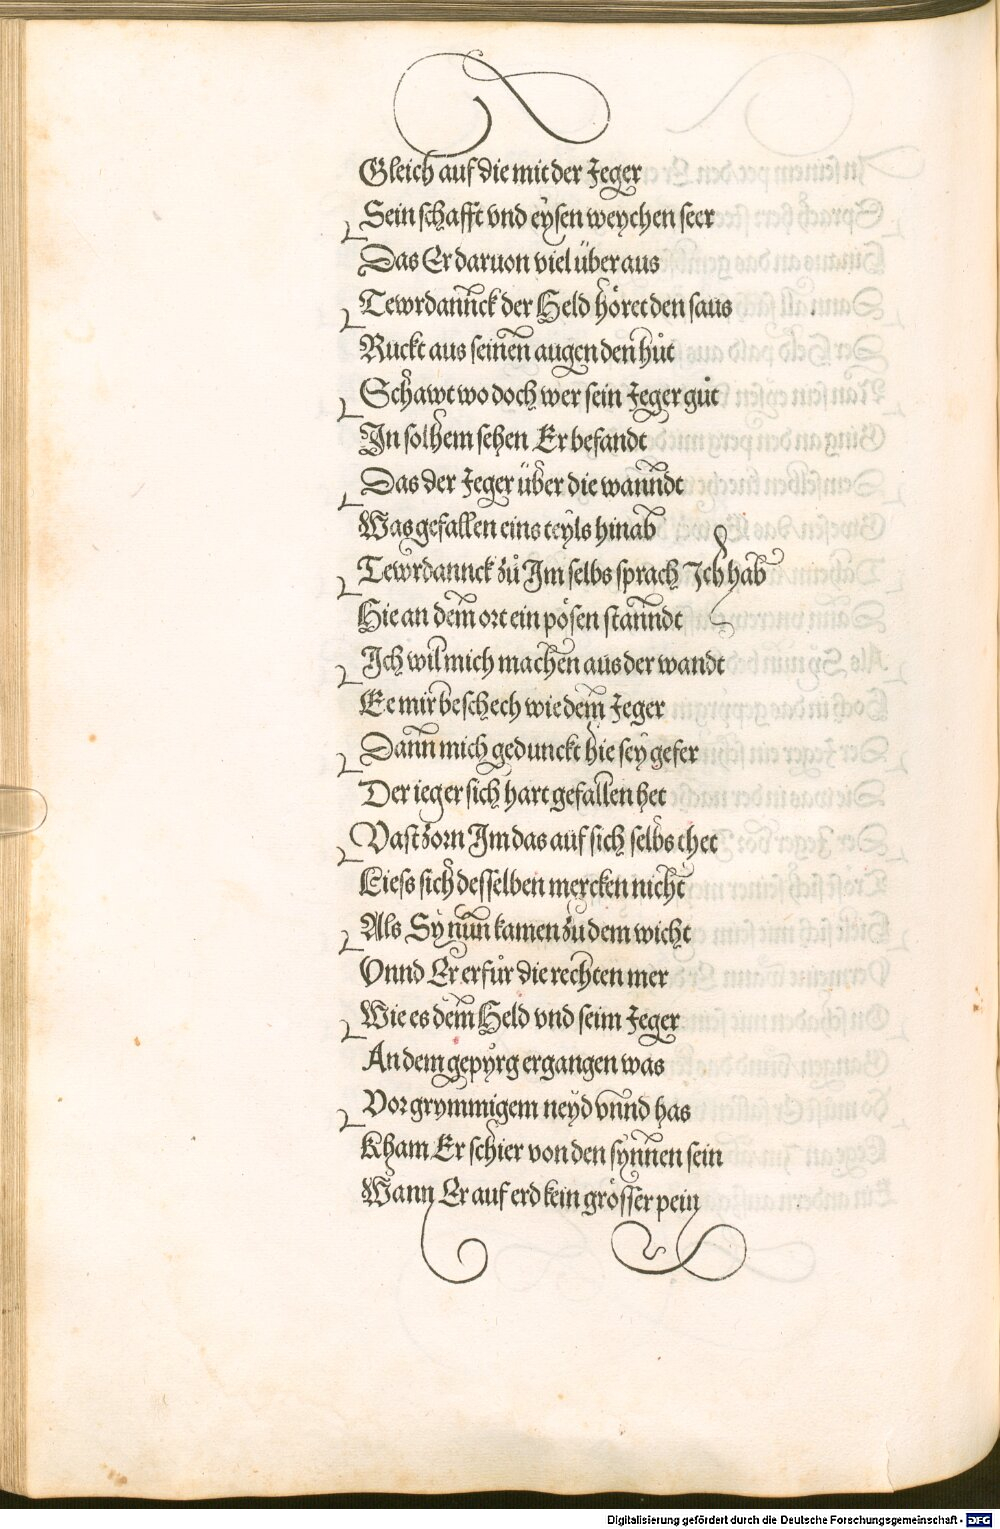 Gleich auf die mit der Jeger
Sein schafft vnd eÿsen weychen seer
Das Er daruon viel über aus
Tewrdannck der Held höret den saus
Ruckt aus seinen augen den hůt
Schawt wo doch wer sein Jeger gůt
In solhem sehen Er befandt
Das der Jeger über die wanndt
Was gefallen eins teÿls hinab
Tewrdannck zů Im selbs sprach Ich hab
Hie an dem ort ein pösen stanndt
Ich wil mich machen aus der wandt
Ee mir beschech wie dem Jeger
Dann mich gedunckt hie seÿ gefer
Der ieger sich hart gefallen het
Vast zorn Im das auf sich selbs thet
Liess sich desselben mercken nicht
Als Sÿ nun kamen zu dem wicht
Vnnd Er erfůr die rechten mer
Wie es dem Held vnd seim Jeger
An dem gepÿrg ergangen was
Vor grymmigem neÿd vnnd has
Kham Er schier von den sÿnnen sein
Wann Er auf erd kein grösser pein
Digitalisierung gefördert durch die Deutsche Forschungsgemeinschaft - DFG